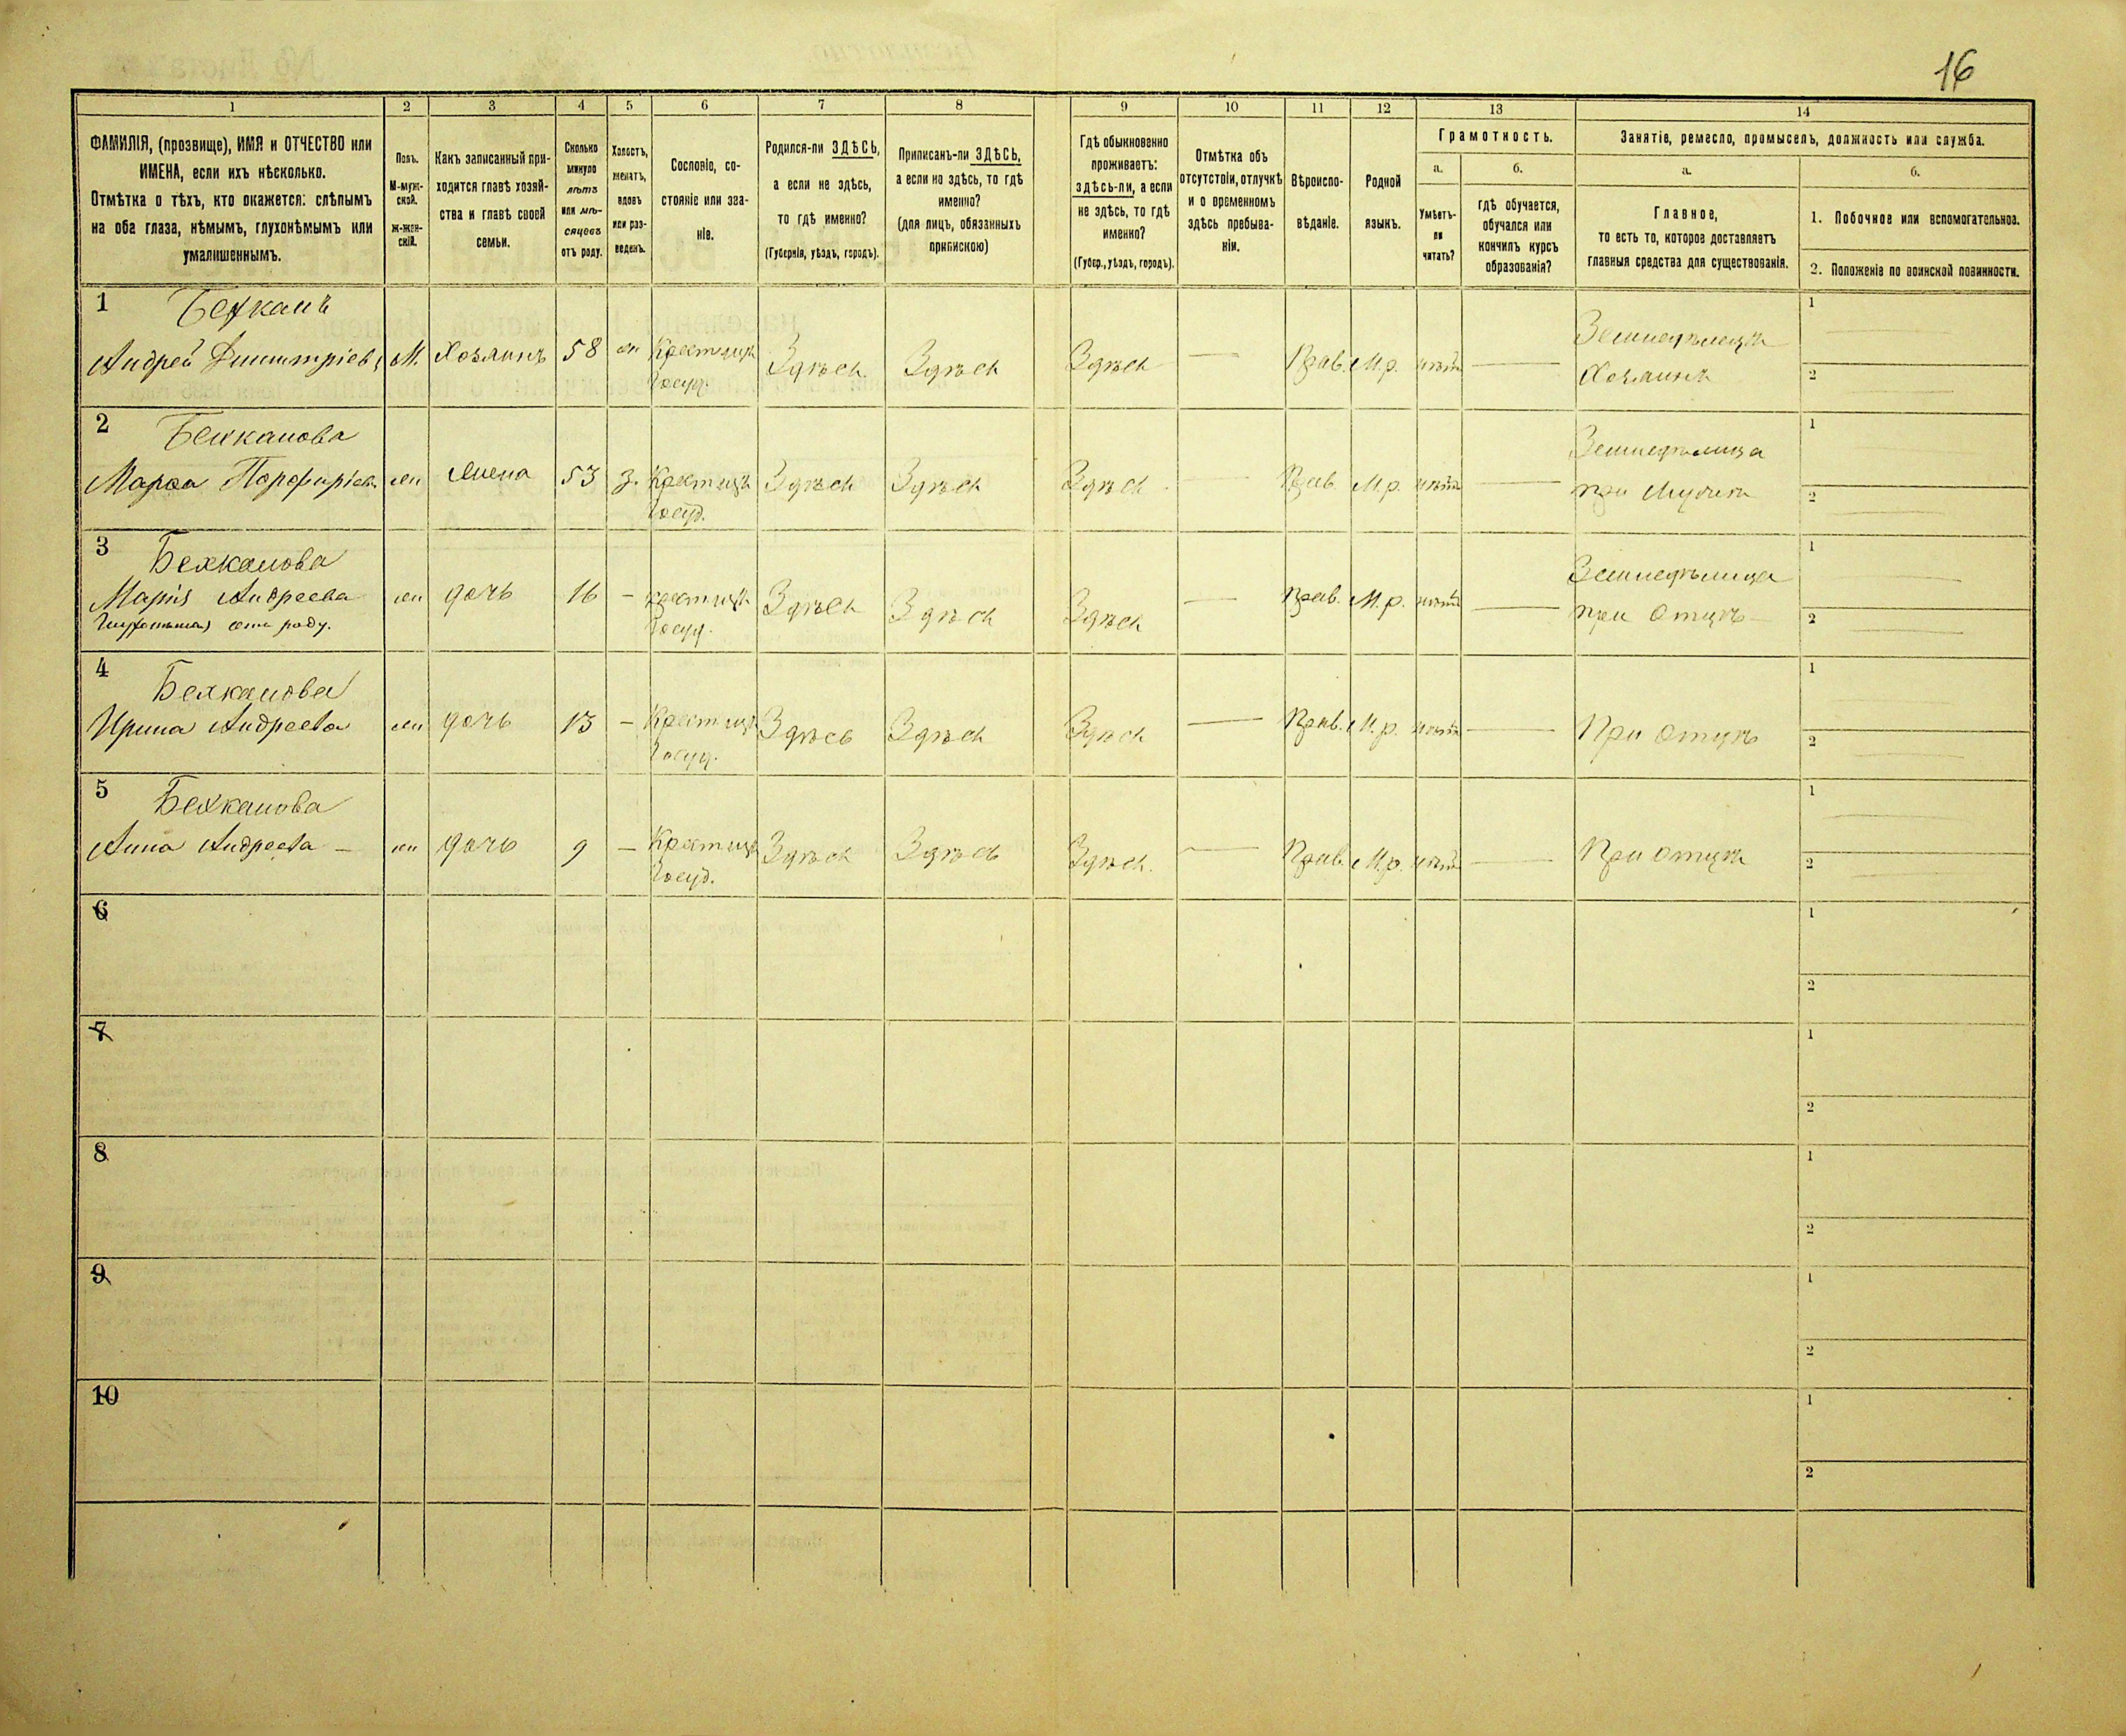 16
1 2 3 4 5 6 7 8 9 10 11 12 13 14
ФАМИЛІЯ, (прозвище), ИМЯ и ОТЧЕСТВО или
ИМЕНА, если ихъ нѣсколько.
Отмѣтка о тѣхъ, кто окажется: слѣпымъ
на оба глаза, нѣмымъ, глухонѣмымъ или
умалишеннымъ.
Полъ.
М-муж-
ской.
ж-жен-
скій.
Какъ записанный при-
ходится главѣ хозяй-
ства и главѣ своей
семьи.
Сколько
минуло
лѣтъ
или мѣ-
сяцевъ
отъ роду.
Холостъ,
женатъ,
вдовъ
или раз-
веденъ.
Сословіе, со-
стояніе или зва-
ніе.
Родился-ли ЗДѢСЬ,
а если не здѣсь,
то гдѣ именно?
(Губернія, уѣздъ, городъ).
Приписанъ-ли ЗДѢСЬ,
а если не здѣсь, то гдѣ
именно?
(для лицъ, обязанныхъ
припискою)
Гдѣ обыкновенно
проживаетъ:
здѣсь-ли, а если
не здѣсь, то гдѣ
именно?
(Губер., уѣздъ, городъ).
Отмѣтка объ
отсутствіи, отлучкѣ
и о временномъ
здѣсь пребыва-
ніи.
Вѣроиспо-
вѣданіе.
Родной
языкъ.
Грамотность.
а.
Умѣетъ-
ли
читать?
б.
гдѣ обучается,
обучался или
кончилъ курсъ
образованія?
Занятіе, ремесло, промыселъ, должность или служба.
а.
Главное,
то есть то, которое доставляетъ
главныя средства для существованія.
б.
1. Побочное или вспомогательное.
2. Положеніе по воинской повинности.
1 Бежканъ
Андрей Дмитріевъ М. Хозяинъ 58 ж Крестьян. Здѣсь Здѣсь Здѣсь — Прав. М.р. нѣтъ — Земледѣлецъ 1
Госуд. Хозяинъ 2
2 Бежканова
Марѳа Порфирьев. ж Жена 53 з. Крестьян. Здѣсь Здѣсь Здѣсь — Прав. М.р. нѣтъ — Земледѣлица 1
Госуд. при Мужѣ 2
3 Бежканова
Марія Андреева ж дочь 16 — крестьян. Здѣсь Здѣсь Здѣсь — Прав. М.р. нѣтъ — Земледѣлица 1
роду. Госуд. при Отцѣ — 2
4 Бежканова
Ирина Андреева ж дочь 13 — Крестьян. Здѣсь Здѣсь Здѣсь — Прав. М.р. нѣтъ — При Отцѣ 1
Госуд. 2
5 Бежканова
Анна Андреева — ж дочь 9 — Крестьян. Здѣсь Здѣсь Здѣсь. — Прав. М.р. нѣтъ — При Отцѣ 1
Госуд. 2
6 1
2
7 1
2
8 1
2
9 1
2
10 1
2